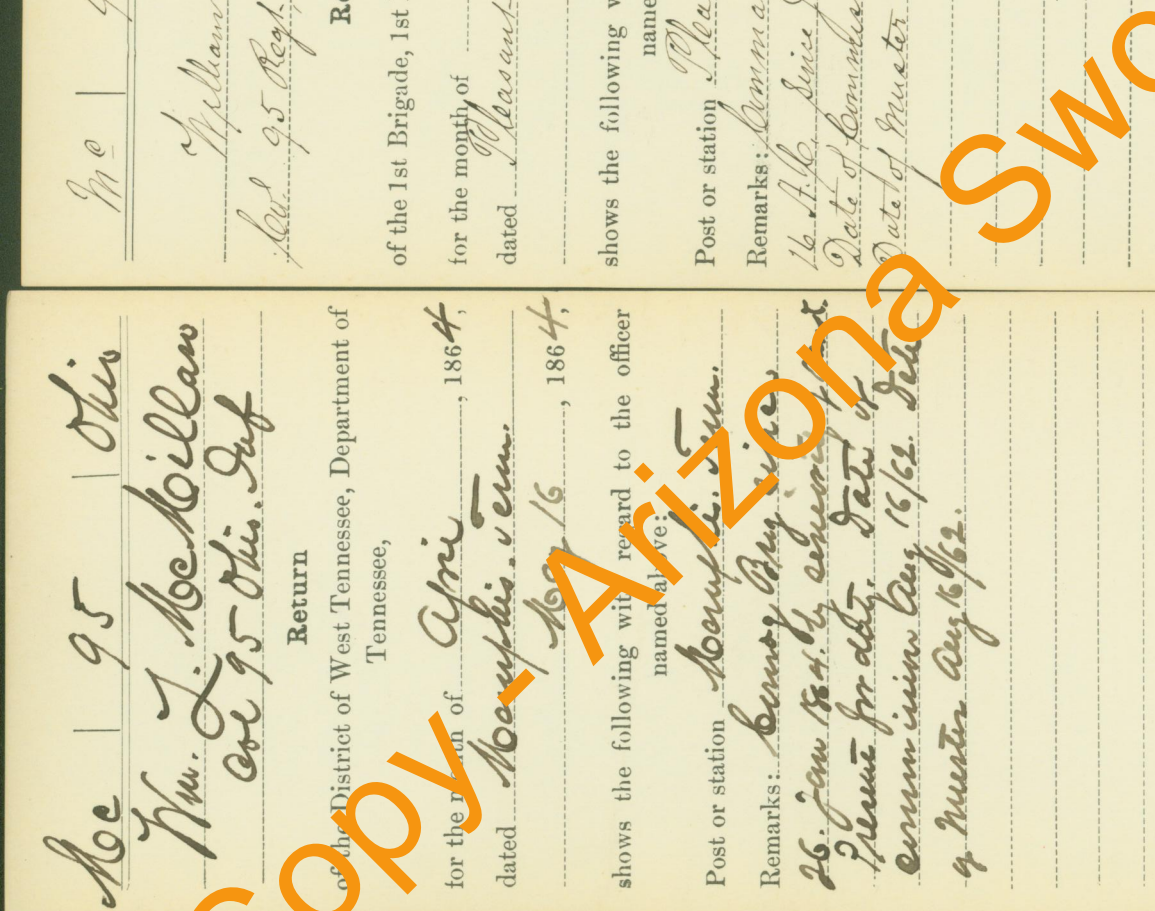 Mc | 95 | Ohio
Wm. L. McMillan
Col 95 Ohio. Inf
Return
of the District of West Tennessee, Department of
Tennessee,
for the month of April, 1864,
dated Memphis. Tenn.
May 16, 1864,
shows the following with regard to the officer
named above:
Post or station Memphis. Tenn.
Remarks: Comdg Brig since
26. Jan 1864.
Present for duty. Date of
commission Aug 16/62. Date
of Muster Aug 16/62.
Mc |
William
Col 95 Regt.
of the 1st Brigade, 1st
for the month of
dated Pleasant
shows the following
name
Post or station Plea
Remarks: Comma
16 A.C. Since
Date of Commis
Date of Muster
Copy - Arizona Swo